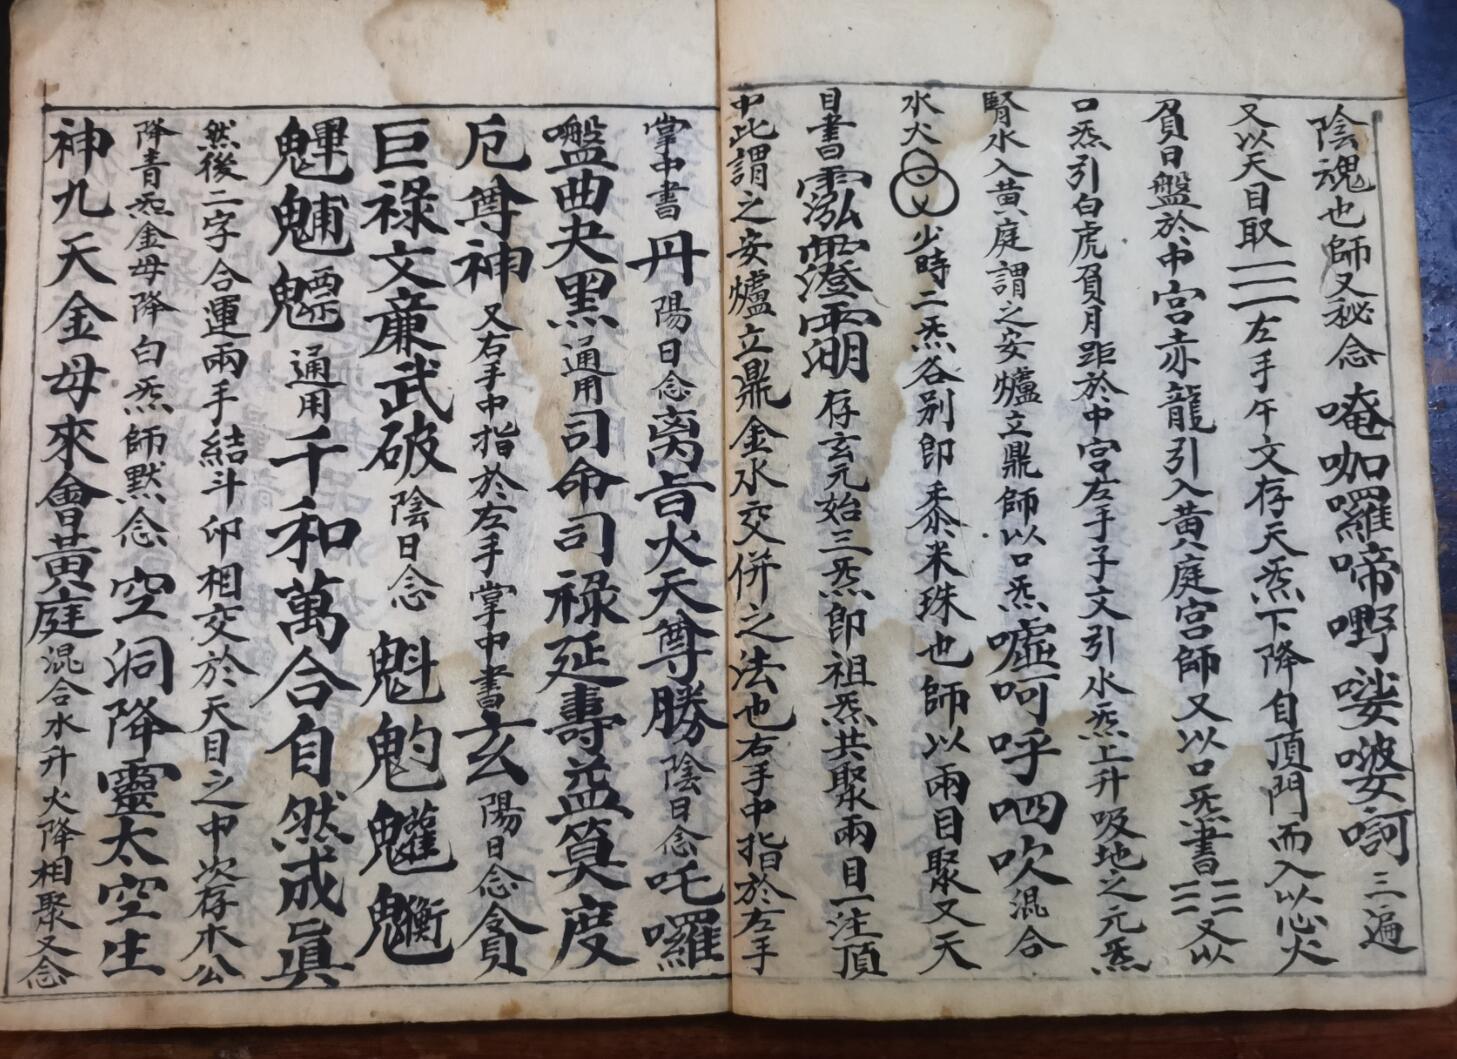 陰魂也師又秘念唵咖囉啼嘢㗌㗑訶三遍
又以天目取☰左手午文存天炁下降自頂門而入以心火
負日盤於中宮赤龍引入黃庭宮師又以口炁書☷又以
口炁引白虎負月距於中宮左手子文引水炁上升吸地之元炁
腎水入黃庭謂之安爐立鼎師以口炁噓呵呼呬吹混合
水火乂少時二炁各别即黍米珠也師以兩目聚又天
目書䨕澄湖存玄元始三炁即祖炁共聚兩目一注頂
中此謂之安爐立鼎金水交併之法也右手中指於左手
掌中書丹陽日念离旨火天尊勝陰日念吒囉
盤曲夬黑通用司命司祿延壽益算度
厄尊神又右手中指於左手掌中書玄陽日念貪
巨祿文廉武破陰日念魁䰢魋䰤
魓䰷魒通用千和萬合自然成眞
然後二字合運兩手結斗印相交於天目之中次存木公
降青炁金母降白炁師默念空洞降靈太空生
神九天金母來會黃庭混合水升火降相聚又念